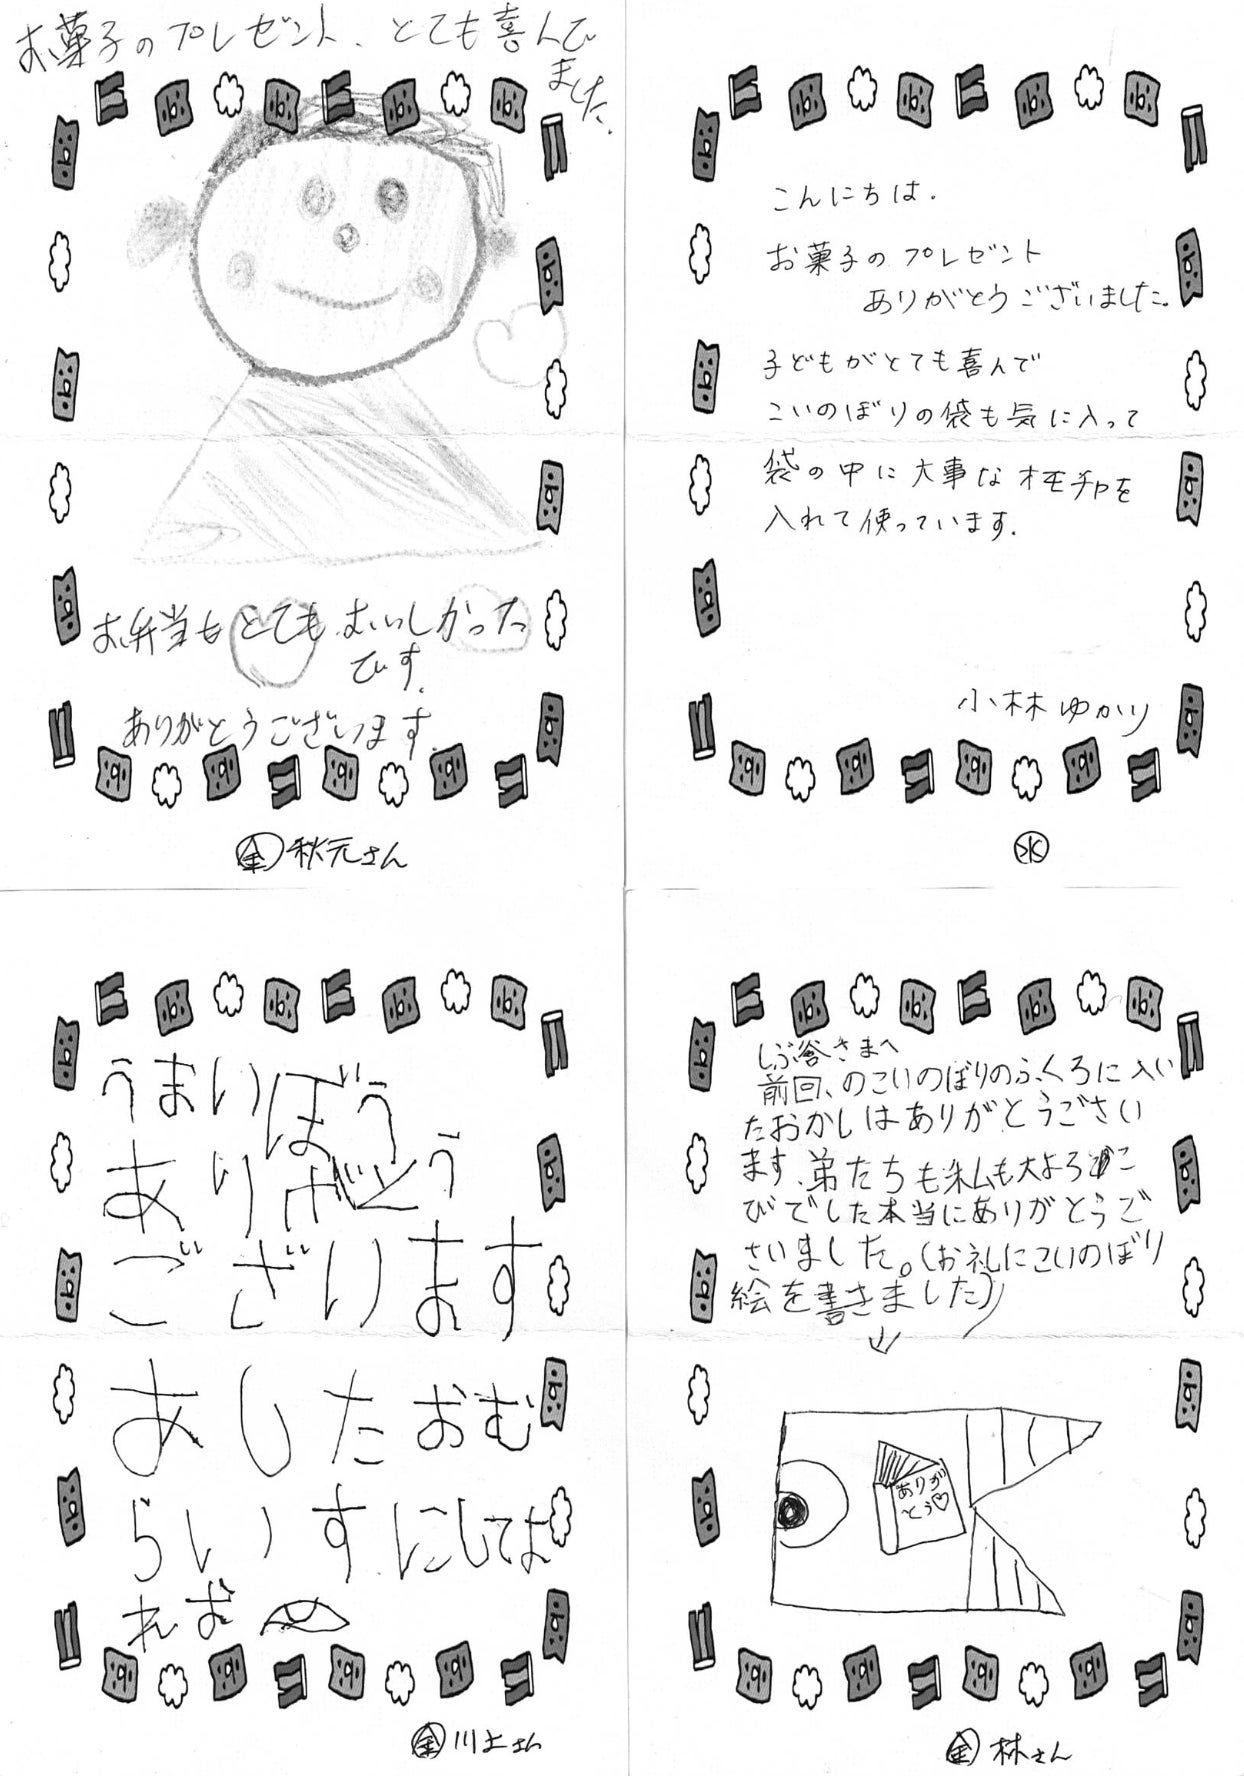 お菓子のプレゼント、とても喜んで
ました。
お弁当もとてもおいしかった
です。
ありがとうございます。
金 秋元さん
こんにちは。
お菓子のプレゼント
ありがとうございました。
子どもがとても喜んで
こいのぼりの袋も気に入って
袋の中に大事なオモチャを
入れて使っています。
小林ゆかり
水
うまいぼう
ありがとう
ございます
あしたおむ
らいすにしてよ
金 川上さん
しぶ谷さまへ
前回、のこいのぼりのふくろに入い
たおかしはありがとうござい
ます、弟たちも私も大よろこ
びでした本当にありがとうご
さいました。(お礼にこいのぼり
絵を書きました)
↓
ありが
とう♡
金 林さん